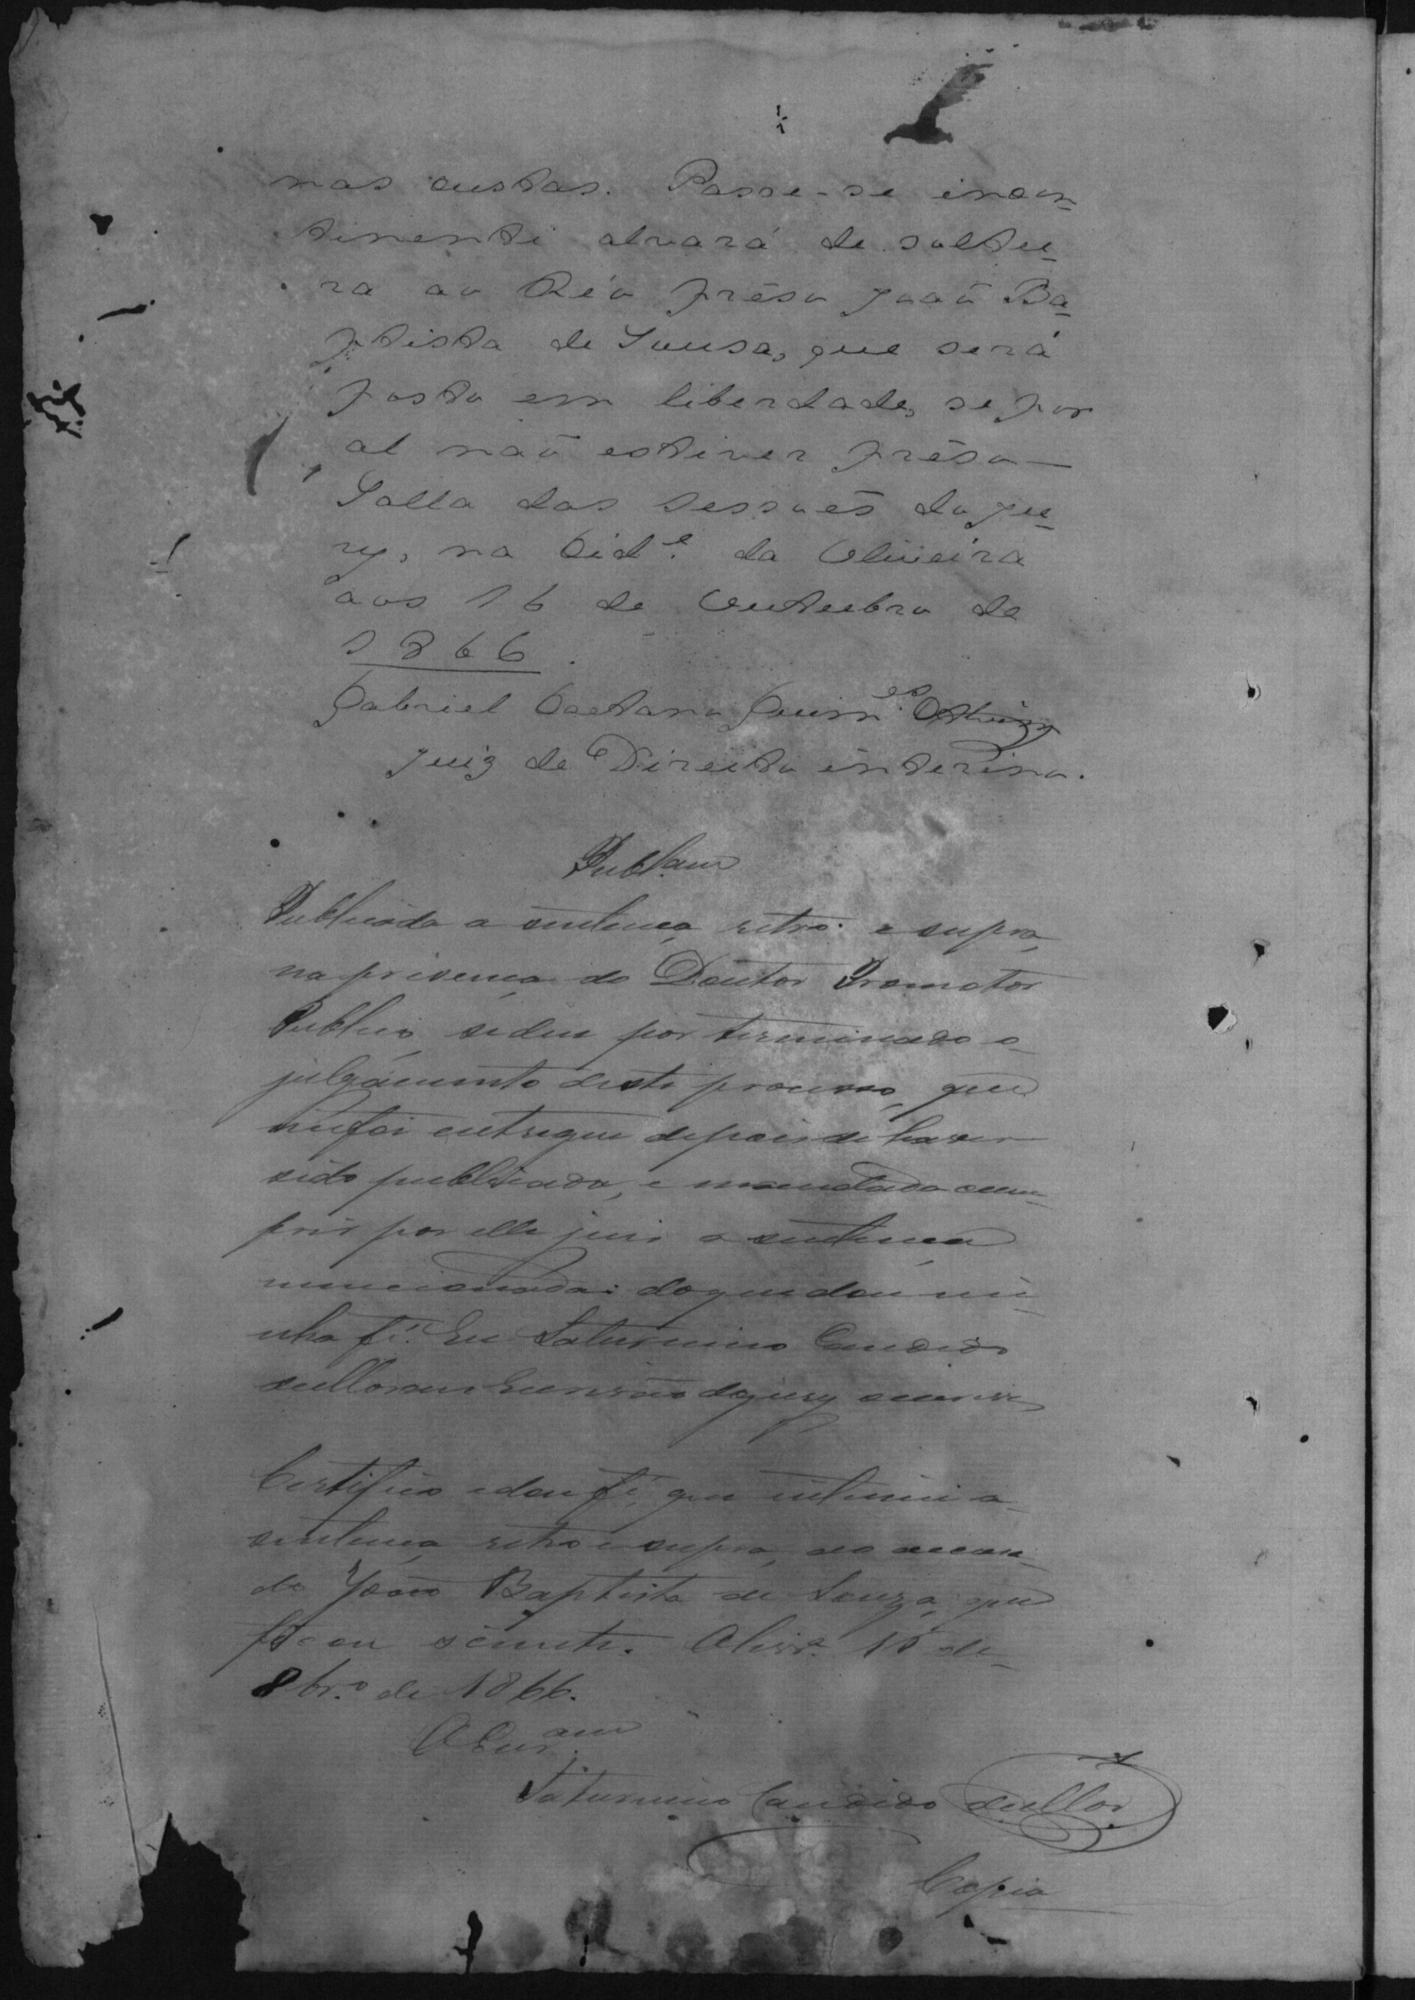 nas custas. Passe-se incon-
tinenti alvará de soltu-
ra ao Réo prêso João Ba-
ptista de Sousa, que será
posto em liberdade, se por
al naõ estiver prêso —
Salla das Sessoẽs do Ju-
ry, na Cid.e da Oliveira
aos 16 de Outubro de
1866.
Gabriel Caetano Guim.es
Juiz de Direito interino.
Publ.am
Publicada a sentença retro e supra,
na prisença do Doutor Promotor
Publico, se deu por terminado o
julgamento deste processo, que
me foi entregue depois de haver
sido publicada, e mandada cum-
prir por elle juis a sentença
mencionada: do que dou mi-
nha fé. Eu Saturnino Candido
Escrivão do jury escrevi
Certifico e dou fé, que intimei a
sentença retro e supra, ao accusa-
do João Baptista de Souza, que
ficou sciente. Olivr.a 16 de
8br.o de 1866.
O Escr.am
Saturnino Candido
Copia